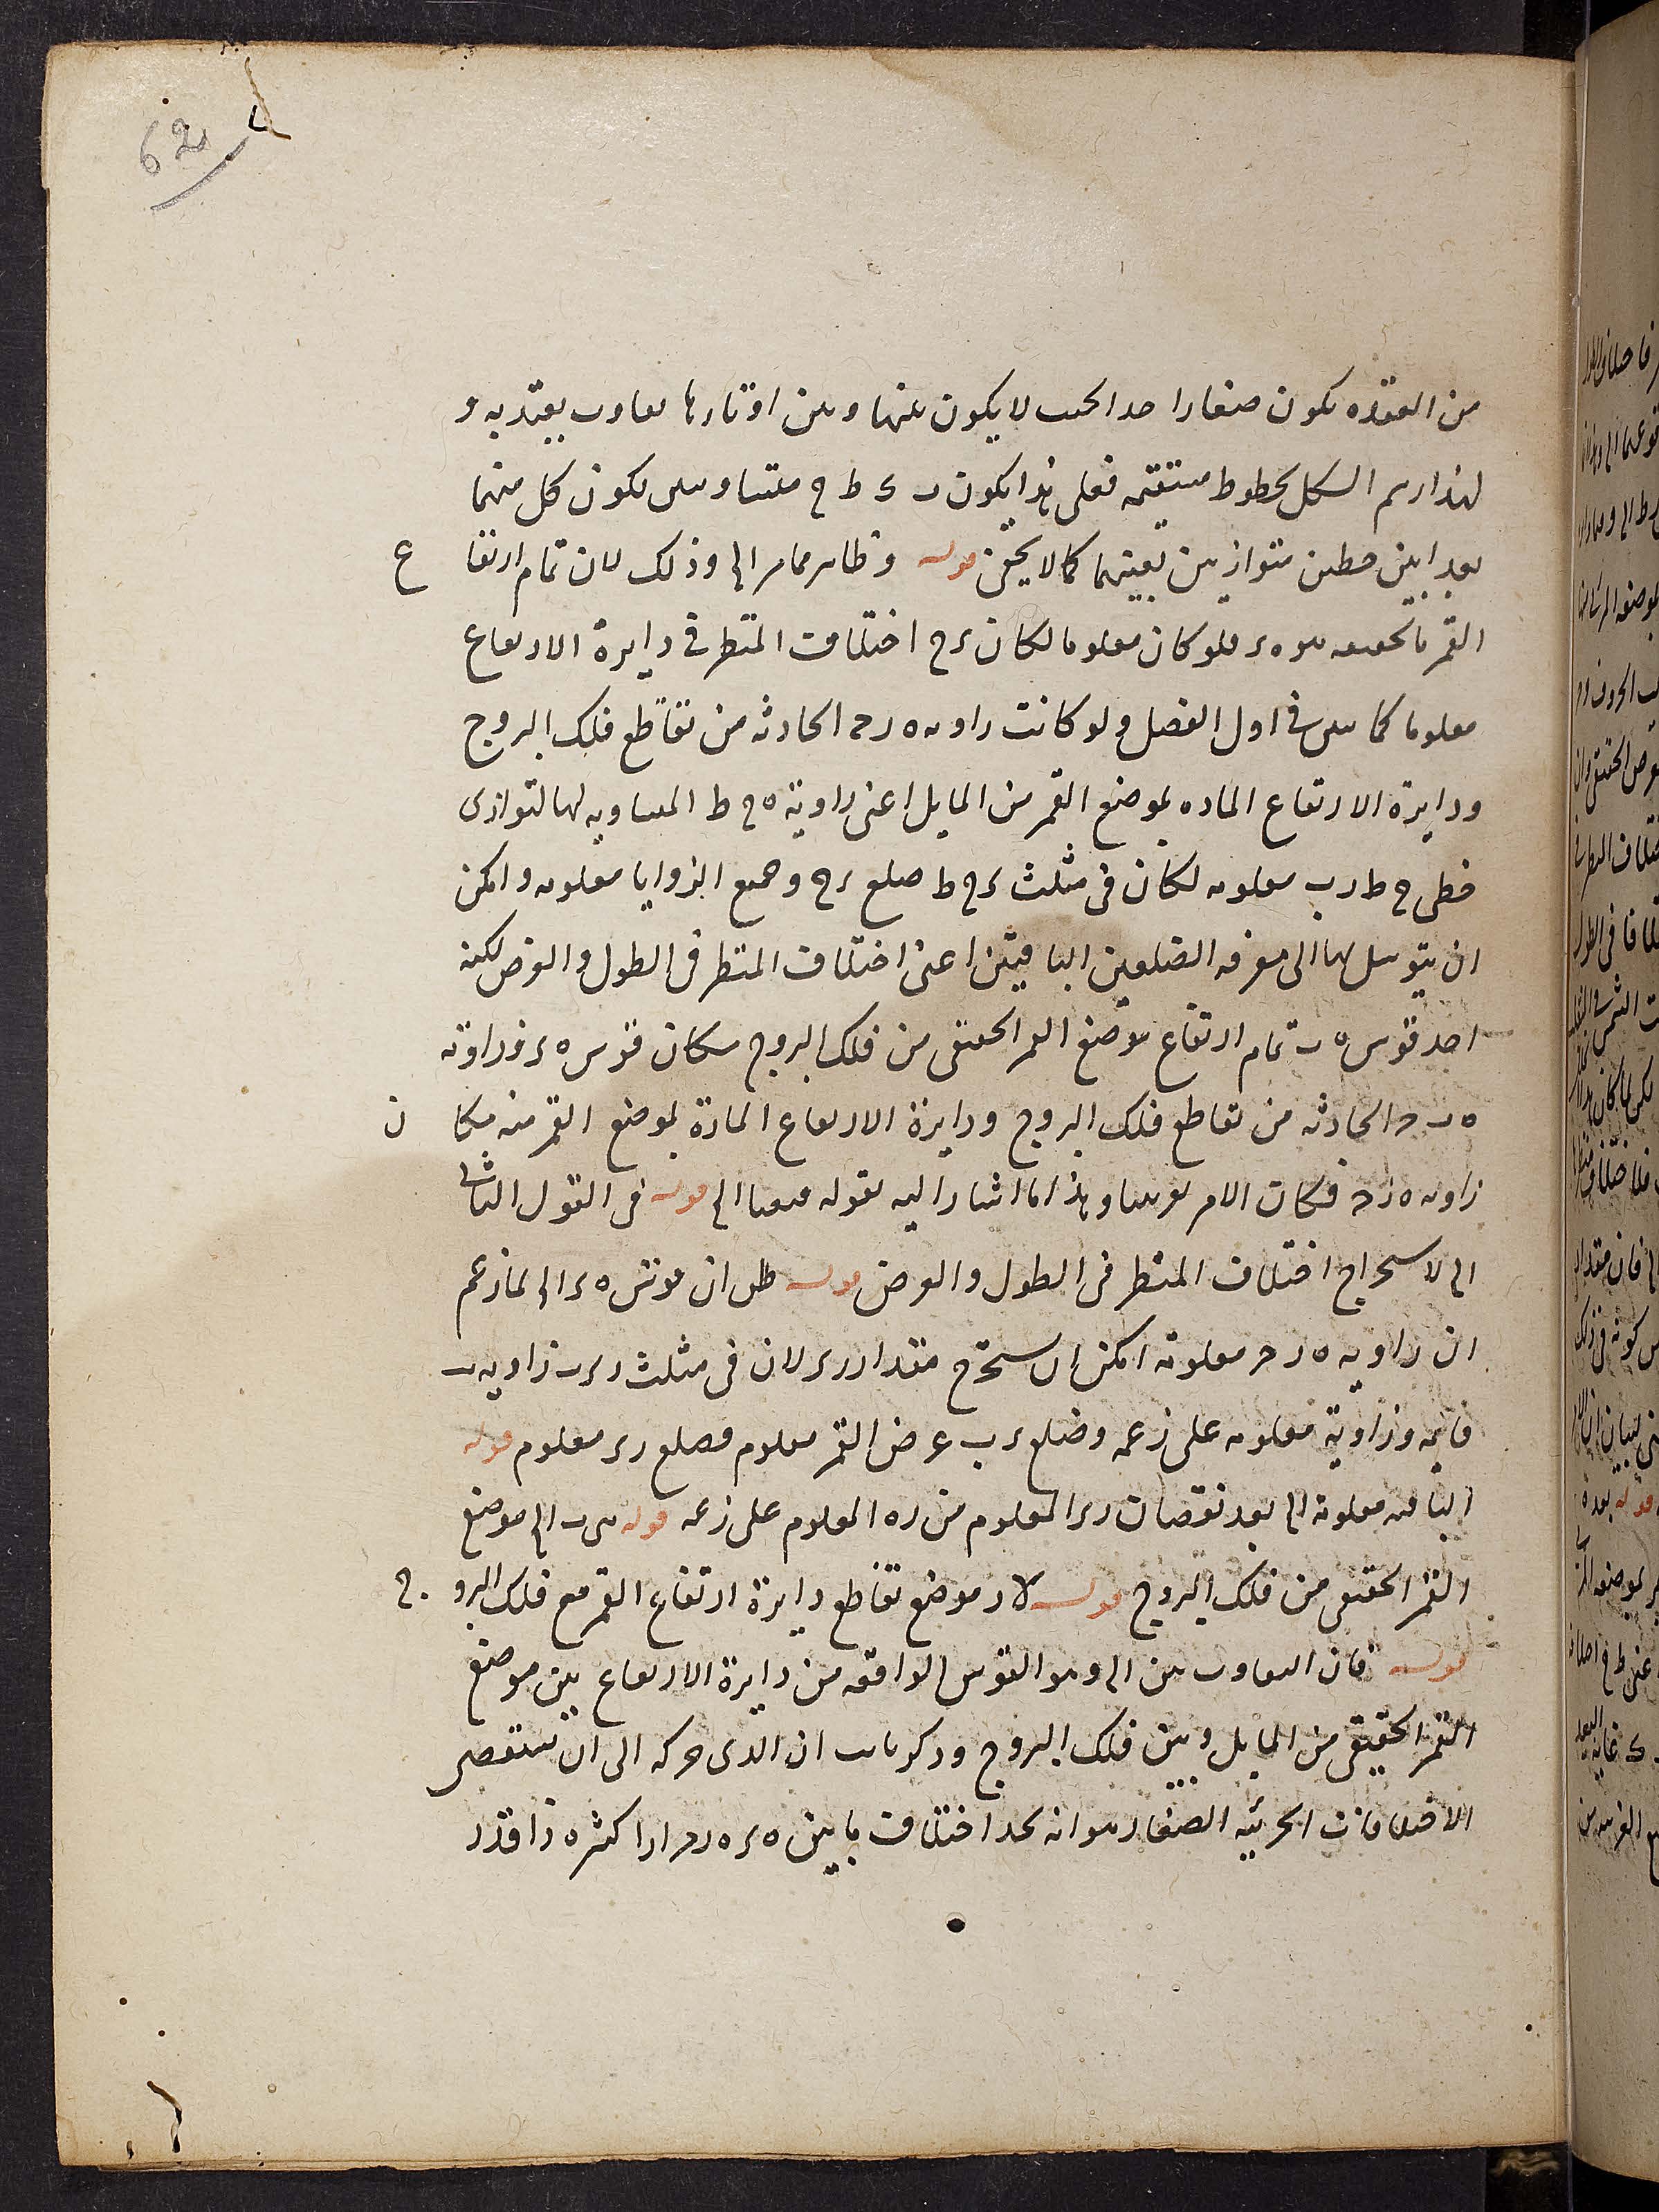 62
من العقده يكون صغارا جدا بحيث لا يكون بينها وبين اوتارها تفاوت يعتد به و
لهذا رسم الشكل بخطوط مستقيمه فعلى هذا يكون ب ك ط ح متساويين يكون كل منهما
بعدا بين خطين متوازيين بعينهما كما لا يخفى قوله وظاهر مما مر الى وذلك لان تمام ارتفا ع
القمر بالحقيقه هو ه ر فلو كان معلوما لكان ر ح اختلاف المنظر في دايرة الارتفاع
معلوما كما بين في اول الفصل ولو كانت زاويه ه ر د الحادثه من تقاطع فلك البروج
ودايرة الارتفاع الماره بموضع القمر من المايل اعني زاوية ه ح ط المساويه لها لتوازى
خطى ح ط ر ب معلومه لكان في مثلث ر ح ط ضلع ر ح وجميع الزوايا معلومه وامكن
ان يتوسل بها الى معرفه الضلعين الباقيتين اعنى اختلاف المنظر في الطول والعرض لكنه
اخذ قوس ه ب تمام ارتفاع موضع القمر الحقيقى من فلك البروج مكان قوس ه ر وزاوية
ه ب د الحادثه من تقاطع فلك البروج ودايرة الارتفاع المارة بموضع القمر منه مكا ن
زاويه ه ز د فكان الامر تقريبا وهذا ما اشار اليه بقوله الى قوله في القول الثانى
الى لاستخراج اختلاف المنظر في الطول والعرض قوله ظن ان قوس ه ر الى لما زعم
ان زاويه ه ر د معلومة امكن ان يستخرج مقدار ر ى لان في مثلث ر ى ب زاويه ب
قايمه وزاوية معلومه على زعمه وضلع ر ب عرض القمر معلوم فضلع ر ى معلوم قوله
الباقيه معلومة الى بعد نقصان ر ى المعلوم من ر ه المعلوم على زعمه قوله ب الى موضع
القمر الحقيقى من فلك البروج قوله لا ر موضع تقاطع دايرة ارتفاع القمر مع فلك البرو ج
قوله فان التفاوت بين الى وهو القوس الواقعه من دايرة الارتفاع بين موضع
القمر الحقيقى من المايل وبين فلك البروج وذكر ان الذى حركه الى ان يستقصى
الاختلافات الجزئيه الصغار هو انه يجد اختلاف ما بين ه ر ه ر د كثره ذا قدر